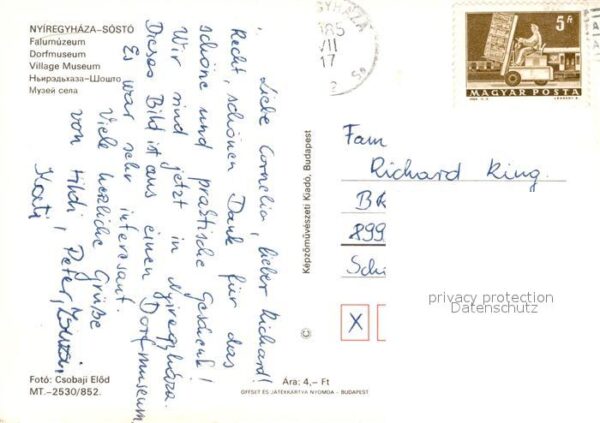 NYÍREGYHÁZA-SÓSTÓ
Falumúzeum
Dorfmuseum
Village Museum
Ньирэдьхаза-Шошто
Музей села
Liebe Cornelia, lieber Richard!
Recht, schönen Dank für das
schöne und praktische Geschenk!
Wir sind jetzt in Nyíregyháza.
Dieses Bild ist aus einen Dorfmuseum.
Es war sehr interesant.
Viele herzliche Grüße
von Hildi, Peter, Zsuzsi,
Kati
Fotó: Csobaji Előd
MT.–2530/852.
Ára: 4,– Ft
OFFSET ÉS JÁTÉKKÁRTYA NYOMDA - BUDAPEST
© Képzőművészeti Kiadó, Budapest
GYHÁZA
985
VII
17
5 Ft
MAGYAR POSTA
Fam
Richard King.
BR
899
Schi
X
privacy protection
Datenschutz